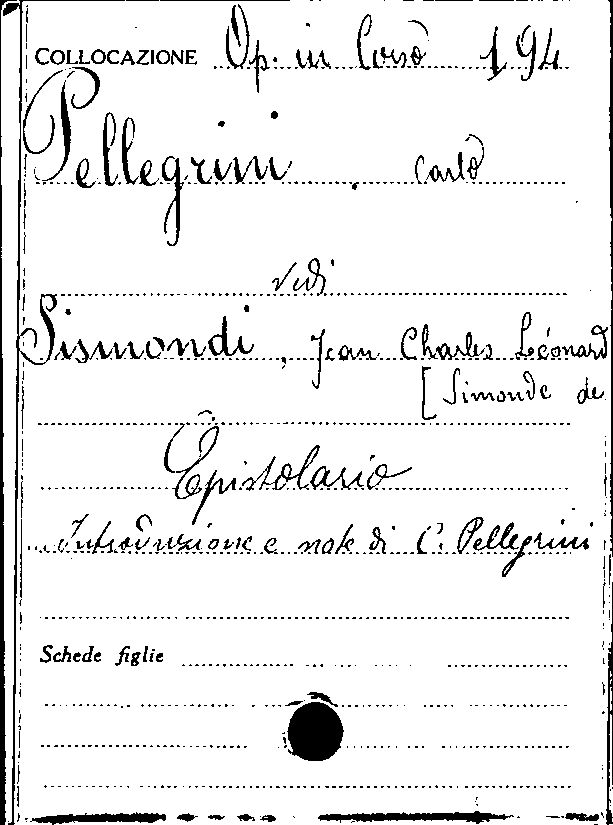 COLLOCAZIONE Op. in Corso 194
Pellegrini, Carlo
vedi
Sismondi, Jean Charles Léonard
[Simonde de
Epistolario
Introduzione e note di C. Pellegrini
Schede figlie